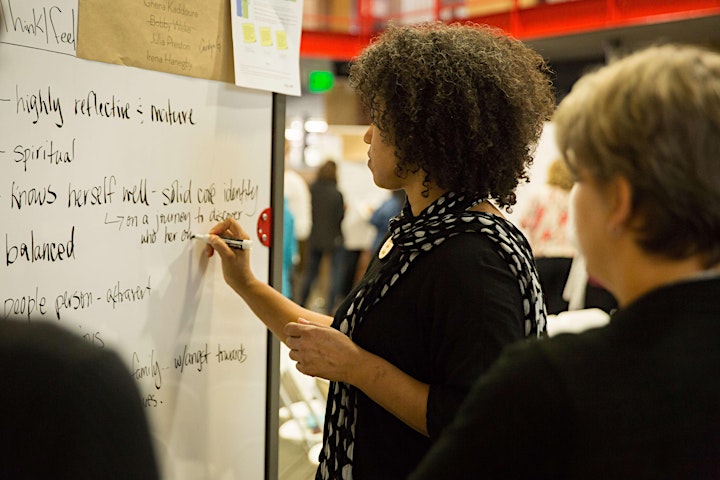 Think/Feel
Ghena Kaddoura
Bobby Wolfe
Julia Preston
Irena Hanegby
- highly reflective & mature
- spiritual
knows herself well - solid core identity
↳ on a journey to discover
who her
balanced
people person -
family - w/angst towards